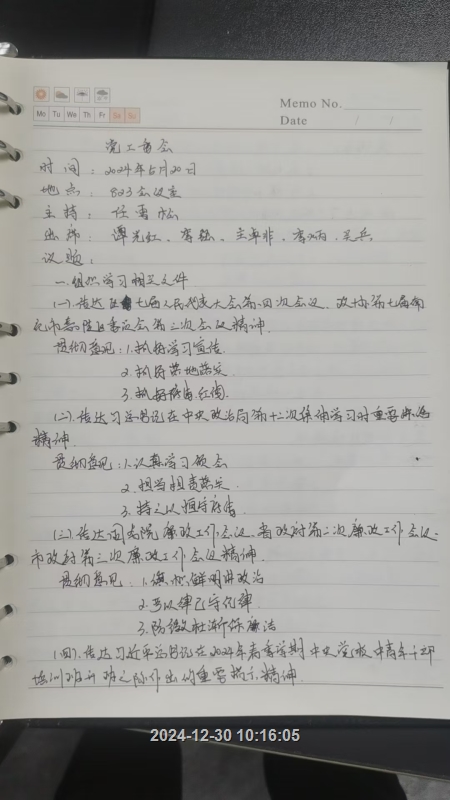 Memo No.
Mo Tu We Th Fr Sa Su
Date / /
党工委会
时间：2024年5月20日
地点：823会议室
主持：任雪松
出席：谭光红、李毅、李炳、吴兵
议题：
一.组织学习相关文件
(一).传达区七届人民代表大会第四次会议、政协第七届
委员会第三次会议精神.
贯彻意见：1.抓好学习宣传.
2.抓好落地落实.
3.抓好
(二).传达习总书记在中央政治局第十二次集体学习时重要讲话
精神.
贯彻意见：1.认真学习领会
2.担当担责落实.
3.持之以恒守底
(三).传达国务院廉政工作会议、省政府第二次廉政工作会议、
市政府第三次廉政工作会议精神.
贯彻意见：1.旗帜鲜明讲政治
2.严以律己守纪律
3.防微杜渐作廉洁
(四).传达习近平总书记在2024年春季学期中央党校中青年干部
培训班开班之际作出的重要指示精神.
2024-12-30 10:16:05